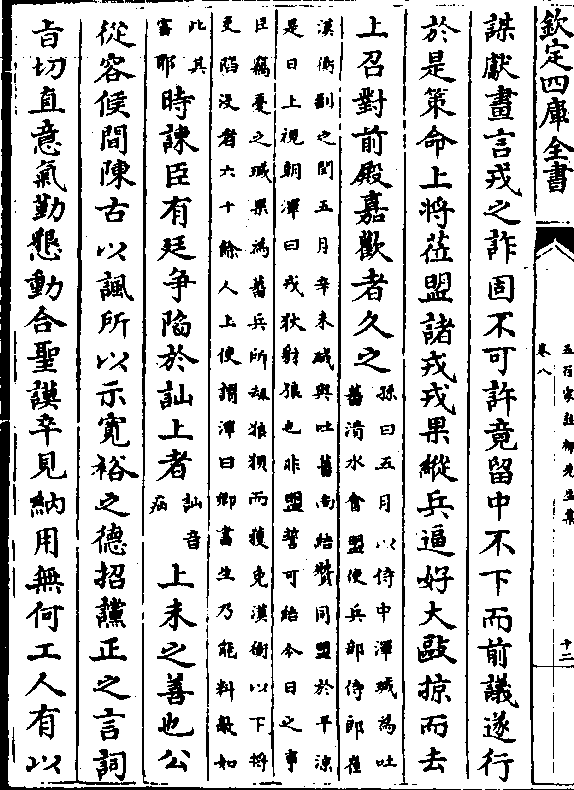 欽定四庫全書
五百家註柳先生集
卷八
十二
謀獻畫言戎之詐固不可許竟留中不下而前議遂行
於是策命上將莅盟諸戎戎果縱兵逼好大敺掠而去
上召對前殿嘉歎者久之
孫曰五月以侍中渾瑊為吐
蕃清水會盟使兵部侍郎崔
漢衡副之閏五月辛未瑊與吐蕃尚結贊同盟於平涼
是日上視朝渾曰戎狄豺狼也非盟誓可結今日之事
臣竊憂之瑊果為蕃兵所劫狼狽而獲免漢衡以下將
吏陷没者六十餘人上使謂渾曰卿書生乃能料敵如
此其
審耶
時諫臣有廷争陷於訕上者
訕音
疝
上未之善也公
從容候間陳古以諷所以示寛裕之德招讜正之言詞
旨切直意氣勤懇動合聖謨卒見納用無何工人有以